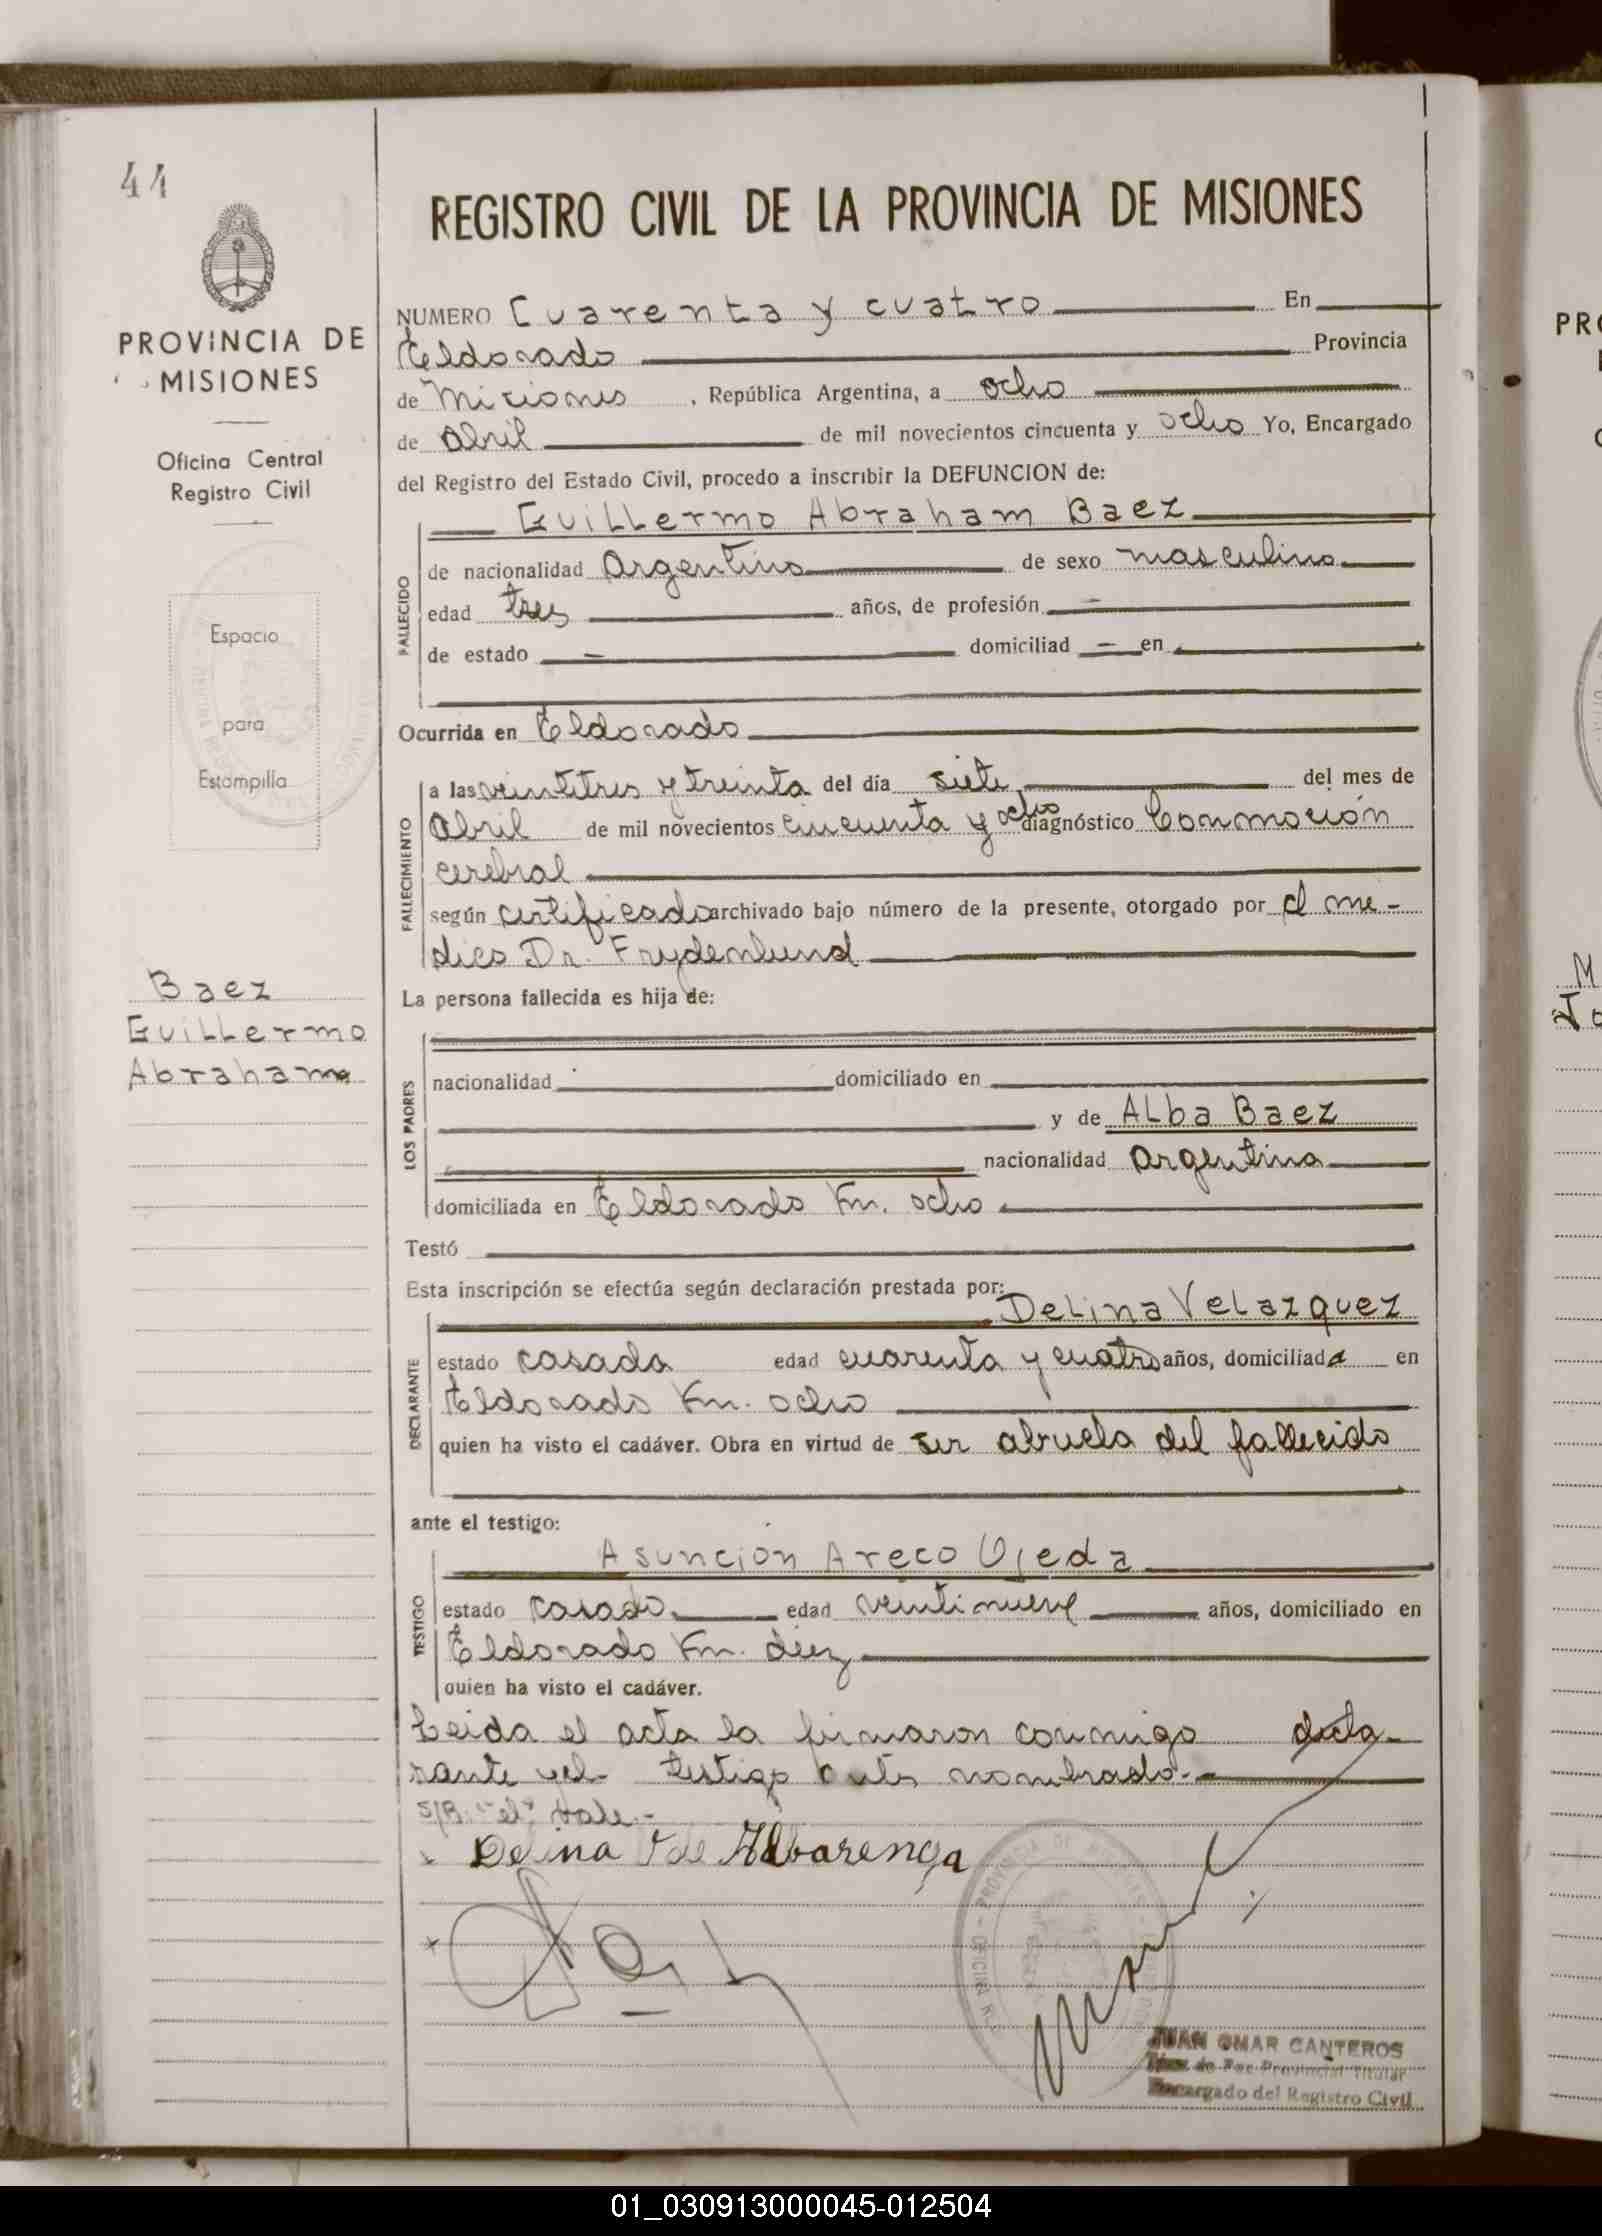 44
PROVINCIA DE
MISIONES
Oficina Central
Registro Civil
Espacio
para
Estampilla
Baez
Guillermo
Abraham
REGISTRO CIVIL DE LA PROVINCIA DE MISIONES
NUMERO Cuarenta y cuatro En
Eldorado Provincia
de Misiones, República Argentina, a ocho
de Abril de mil novecientos cincuenta y ocho Yo, Encargado
del Registro del Estado Civil, procedo a inscribir la DEFUNCION de:
FALLECIDO
Guillermo Abraham Baez
de nacionalidad Argentino de sexo masculino
edad tres años, de profesión -
de estado - domiciliad - en
Ocurrida en Eldorado
FALLECIMIENTO
a las veintitres y treinta del día siete del mes de
Abril de mil novecientos cincuenta y ocho diagnóstico Conmoción
cerebral
según certificado archivado bajo número de la presente, otorgado por el me-
dico Dr. Frydenlund
La persona fallecida es hija de:
LOS PADRES
nacionalidad domiciliado en
y de Alba Baez
nacionalidad Argentina
domiciliada en Eldorado Km. ocho
Testó
Esta inscripción se efectúa según declaración prestada por:
DECLARANTE
Delina Velazquez
estado casada edad cuarenta y cuatro años, domiciliada en
Eldorado Km. ocho
quien ha visto el cadáver. Obra en virtud de ser abuela del fallecido
ante el testigo:
TESTIGO
Asuncion Areco Ojeda
estado casado edad veintinueve años, domiciliado en
Eldorado Km. diez
quien ha visto el cadáver.
Leida el acta la firmaron conmigo decla-
rante y el testigo antes nombrado.-
S/R: "el" Vale.-
Delina V de Albarenga
PROVINCIA DE MISIONES
JUAN OMAR CANTEROS
Juez de Paz Provincial Titular
Encargado del Registro Civil
PRO
M
01_030913000045-012504